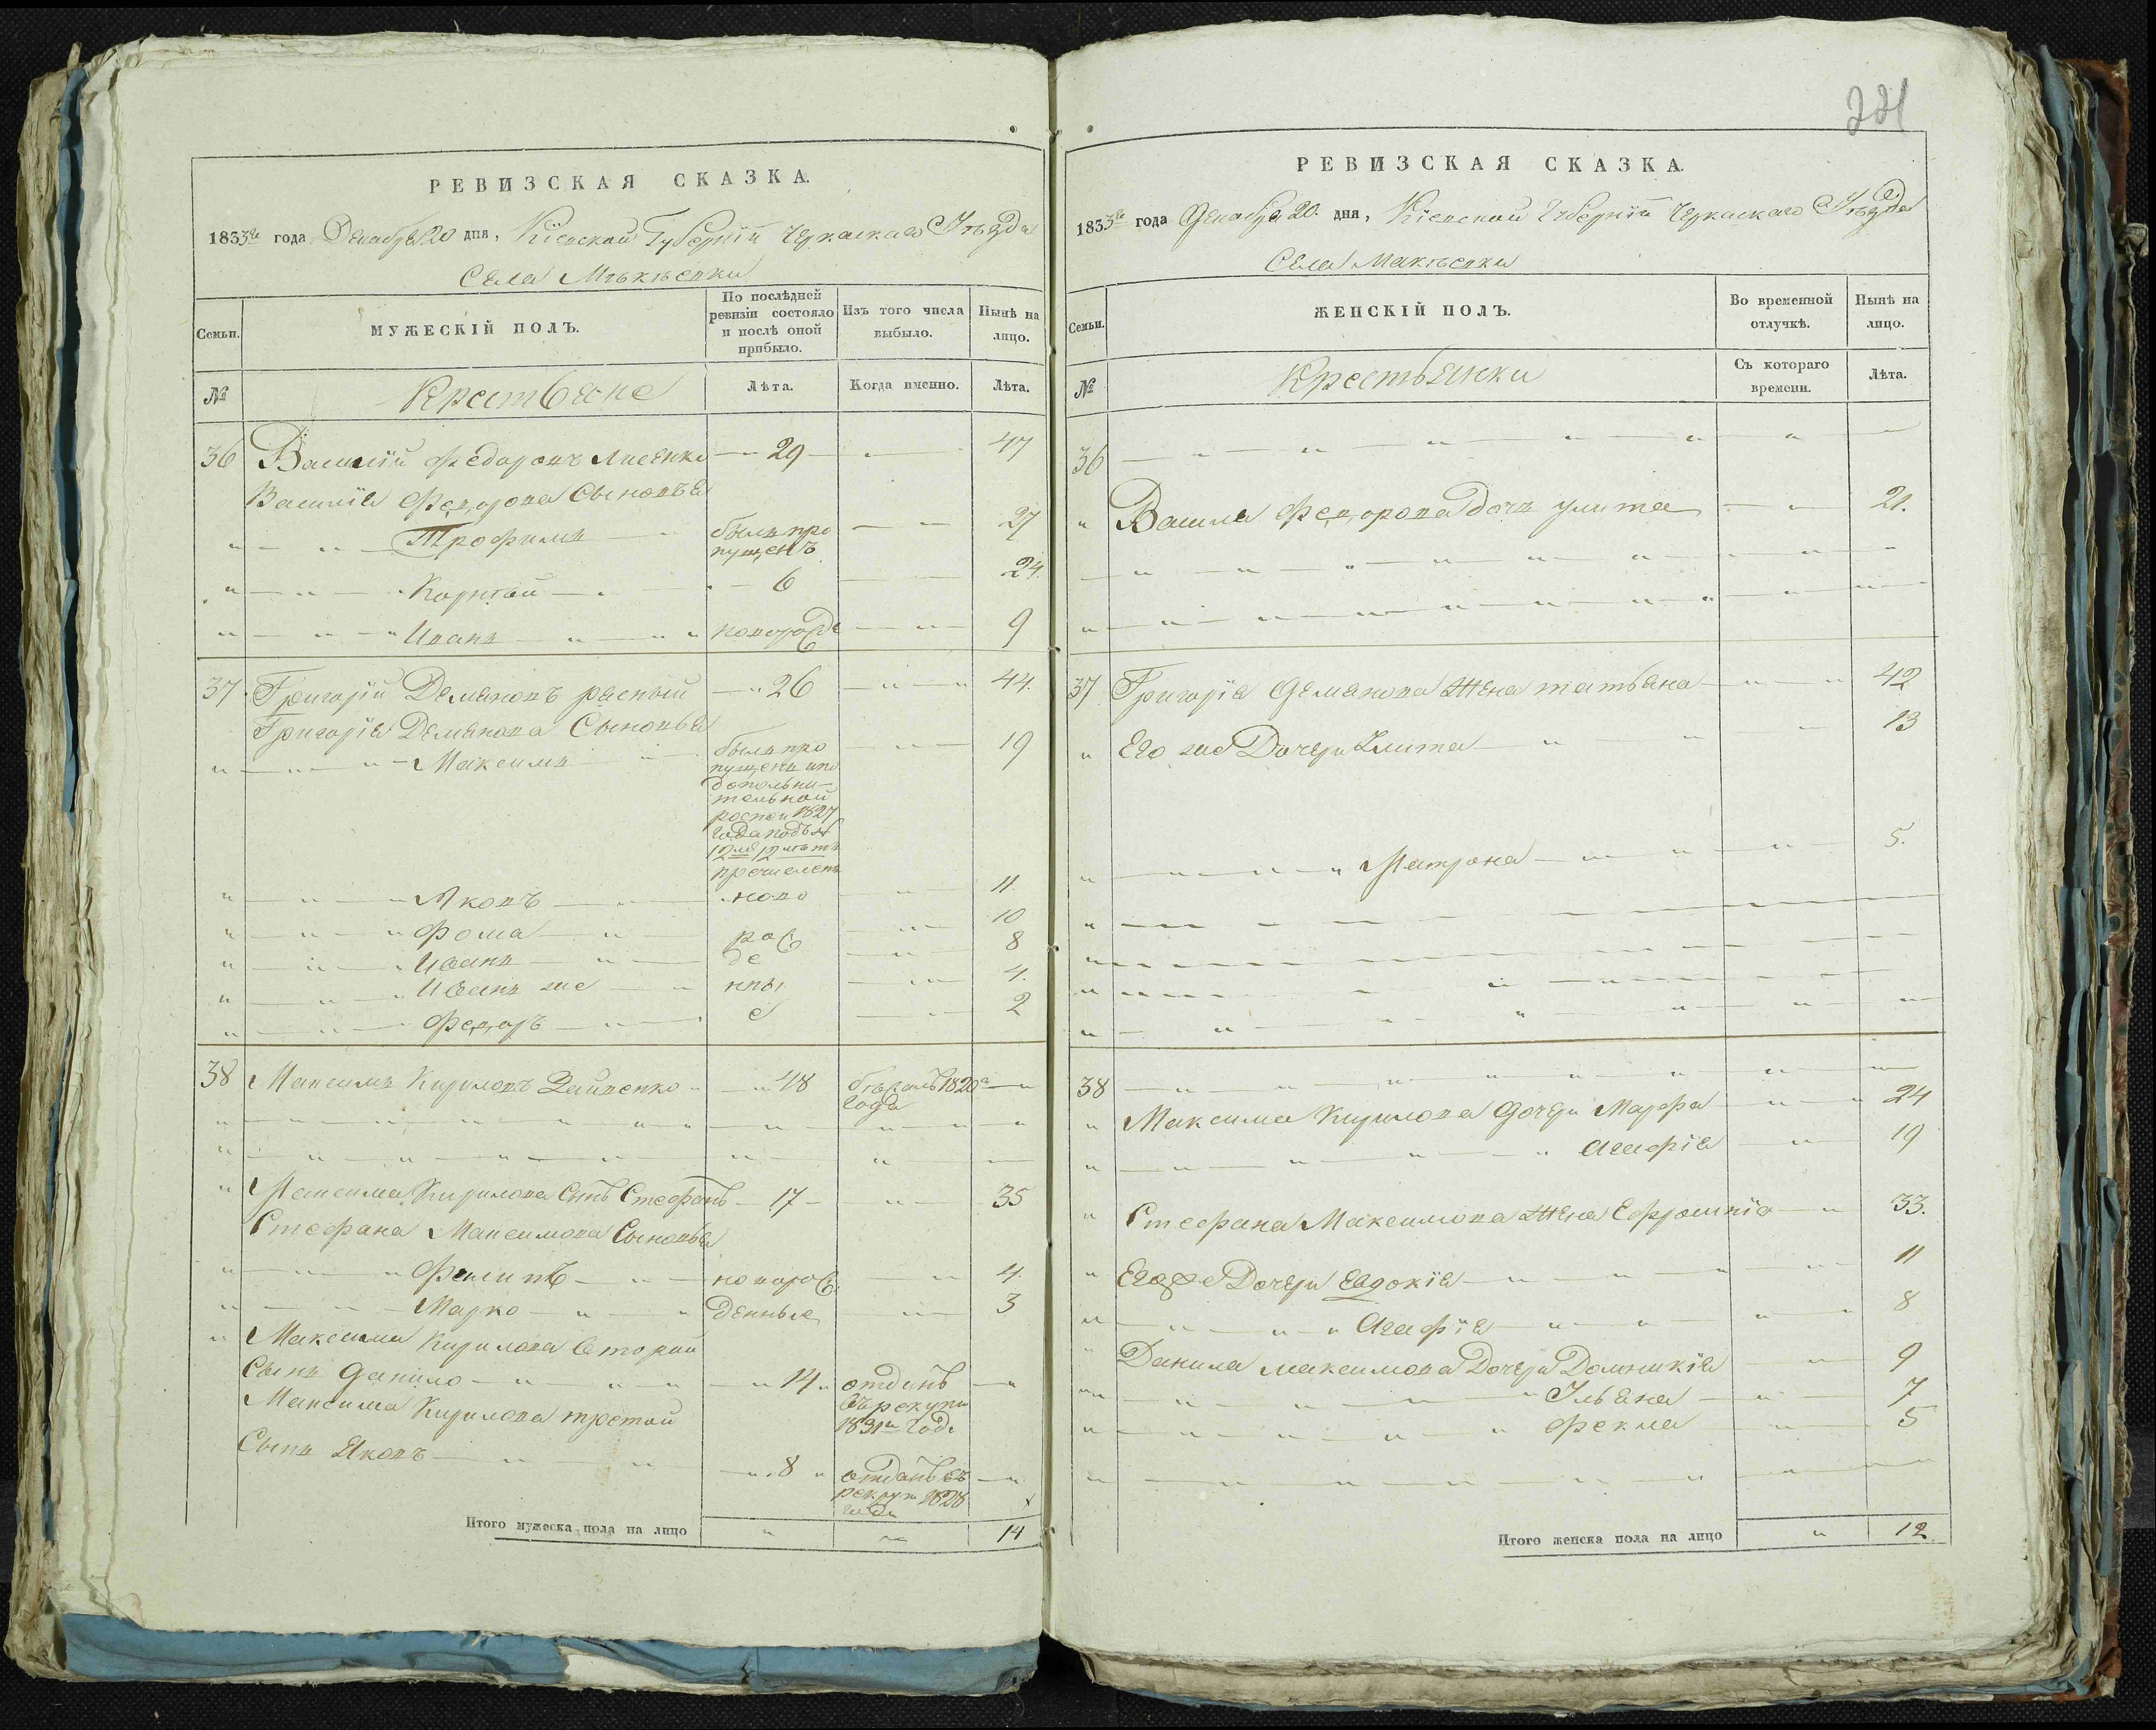 РЕВИЗСКАЯ СКАЗКА.
1833го года Декабря 20 дня, Кіевской Губерніи Черкаскаго Уѣзда
Села Мѣкѣевки
Семьи.
МУЖЕСКІЙ ПОЛЪ.
По послѣдней ревизіи состояло и послѣ оной прибыло.
Изъ того числа выбыло.
Нынѣ на лицо.
№
Крестьяне
Лѣта.
Когда именно.
Лѣта.
36 Василій Федоровъ Лисенко — 29 — 47
Василія Федорова Сыновья
Трофимъ — былъ про — 27
пущенъ
Корнѣй — 6 — 24.
Иванъ — новорожде — 9
37 Григорій Демяновъ — 26 — 44.
Григорія Демянова Сыновья
Максимъ — былъ про — 19
пущенъ и по
дополни-
тельной
1827
года подъ №
12 мъ 12 лѣтъ
причисленъ
Яковъ — ново — 11.
Фома — рож — 10
Иванъ — де — 8
Иванъ же — нны — 4.
Федоръ — е — 2
38 Максимъ Кириловъ — 48 — бѣжалъ 1820
года
Максима Кирилова Сынъ Стефанъ — 17 — 35
Стефана Максимова Сыновья
Филипъ — новорож — 4.
Марко — денные — 3
Максима Кирилова вторий
Сынъ Данило — 14 — отданъ
въ рекруты
1831м Годе
Максима Кирилова третий
Сынъ Яковъ — 8 — отданъ въ
рекрут 1828
годе
Итого мужеска пола на лицо — 14
221
РЕВИЗСКАЯ СКАЗКА.
1833го года Декабря 20. дня, Кіевской Губерніи Черкаскаго Уѣзда
Села Макѣевки
Семьи.
ЖЕНСКІЙ ПОЛЪ.
Во временной отлучкѣ.
Нынѣ на лицо.
№
Крестьянки
Съ котораго времени.
Лѣта.
36
Василя Федорова Дочь Улита — 21.
37 Григорія Демянова Жена Татьяна — 42
Его же Дочери Улита — 13
Матрона — 5.
38
Максима Кирилова Дочери Марфа — 24
Агафія — 19
Стефана Максимова Жена Ефросинія — 33.
Его же Дочери Евдокія — 11
Агафія — 8
Данила Максимова Дочери Домникія — 9
Ульяна — 7
Фекла — 5
Итого женска пола на лицо — 12